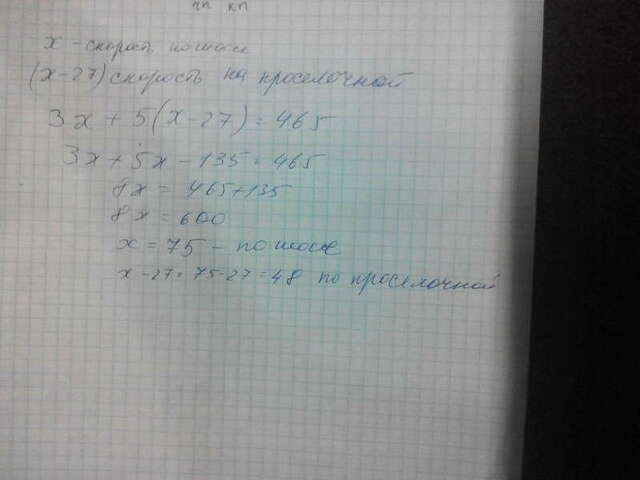 х - скорость по шоссе
(х-27) скорость на проселочной
3х + 5(х-27) = 465
3х + 5х - 135 = 465
8х = 465+135
8х = 600
х = 75 - по шоссе
х - 27 = 75-27 = 48 по проселочной